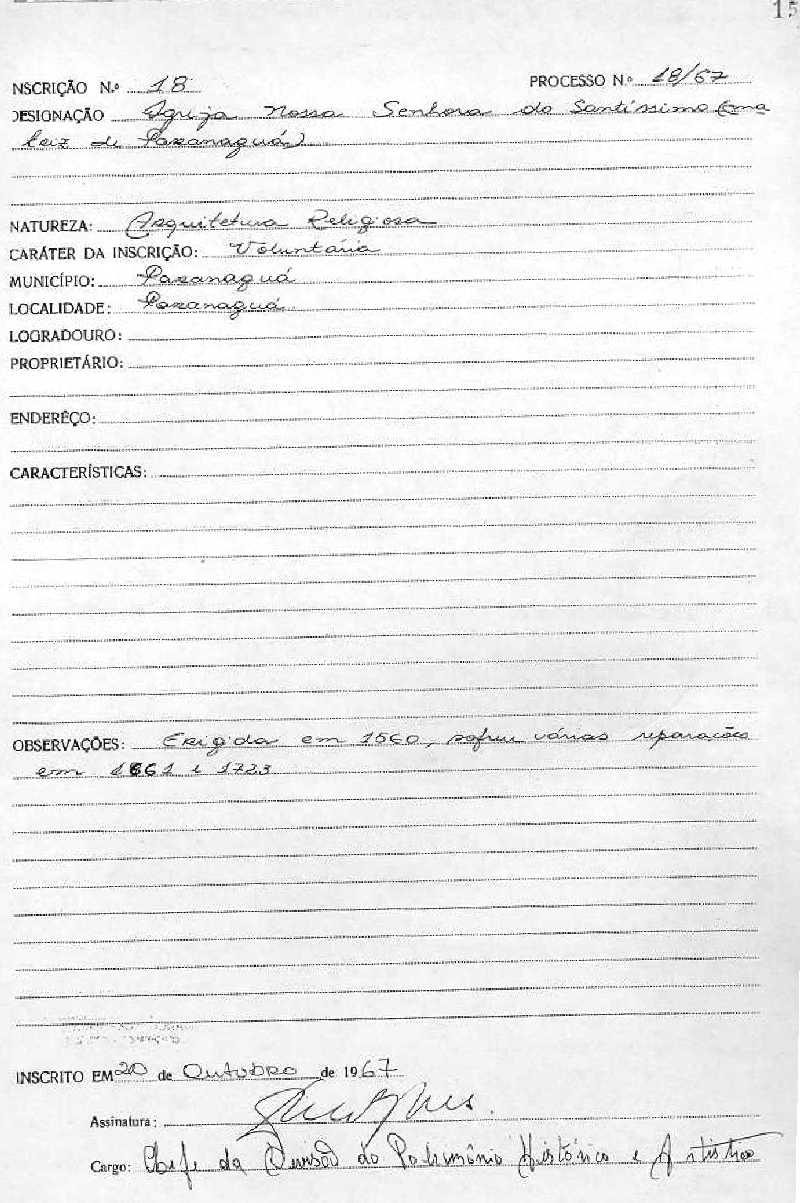 15
NSCRIÇÃO N.º 18 PROCESSO N.º 18/67
DESIGNAÇÃO Igreja Nossa Senhora do Santíssimo (ma
triz de Paranaguá)
NATUREZA: Arquitetura Religiosa
CARÁTER DA INSCRIÇÃO: Voluntária
MUNICÍPIO: Paranaguá
LOCALIDADE: Paranaguá
LOGRADOURO:
PROPRIETÁRIO:
ENDERÊÇO:
CARACTERÍSTICAS:
OBSERVAÇÕES: Erigida em 1560, sofreu várias reparações
em 1661 e 1723
INSCRITO EM 20 de Outubro de 1967
Assinatura:
Cargo: Chefe da Divisão do Patrimônio Histórico e Artístico